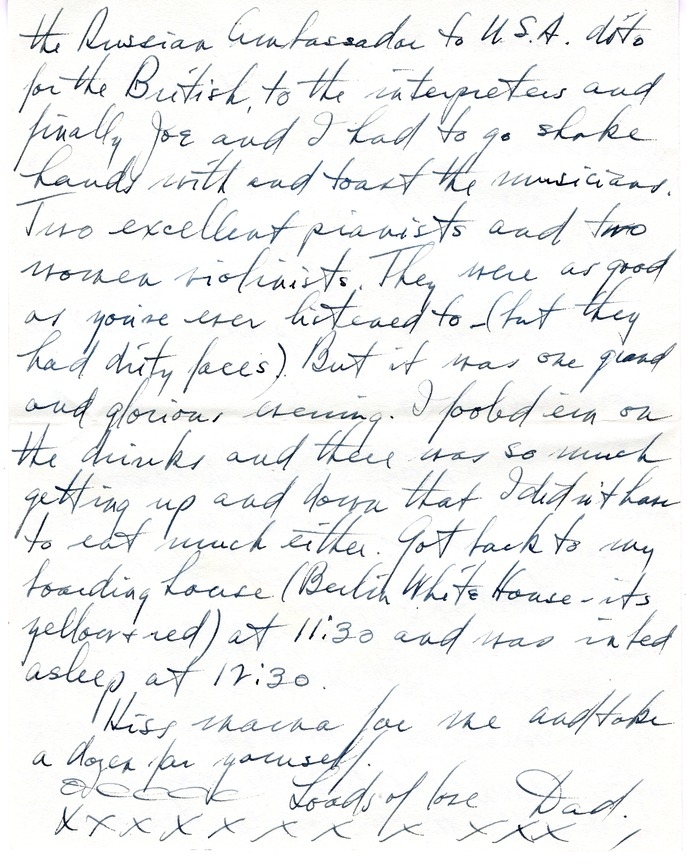 the Russian Ambassador to U.S.A. ditto
for the British, to the interpreters and
finally Joe and I had to go shake
hands with and toast the musicians.
Two excellent pianists and two
women violinists. They were as good
as you've ever listened to - (but they
had dirty faces). But it was one grand
and glorious evening. I fooled 'em on
the drinks and there was so much
getting up and down that I didn't have
to eat much either. Got back to my
boarding house (Berlin White House - its
yellow & red) at 11:30 and was in bed
asleep at 12:30.
Kiss mama for me and take
a dozen for yourself.
Loads of love Dad.
X X X X X X X X X X X